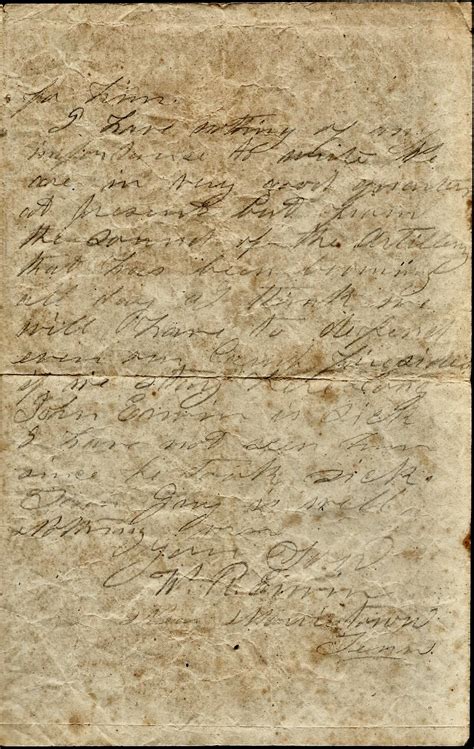 for him.
I have nothing of any
importance to write We
are in very good quarters
at present but from
the sound of the Artillery
that has been
all day I think we
will have to defend
even our
if we stay here long
John Erwin is sick
I have not seen him
since he took sick.
is well
Nothing
Your
W. R. Erwin
Town
Tenn.